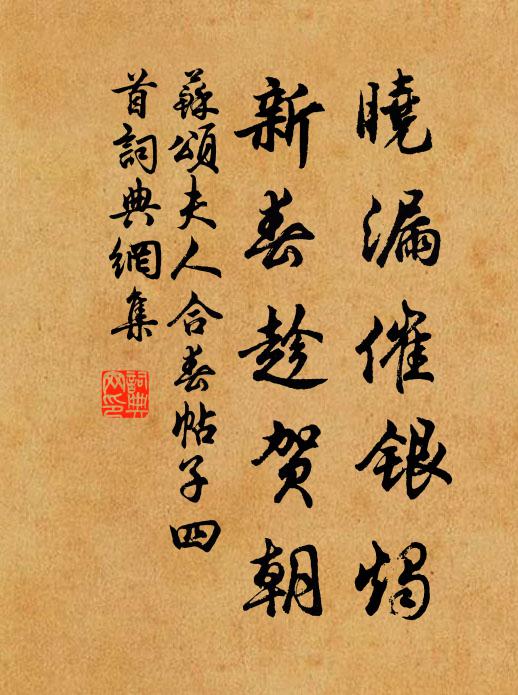 曉漏催銀燭
新春趁賀朝
蘇頌夫人合春帖子四
首詞典網集
詞典
网印